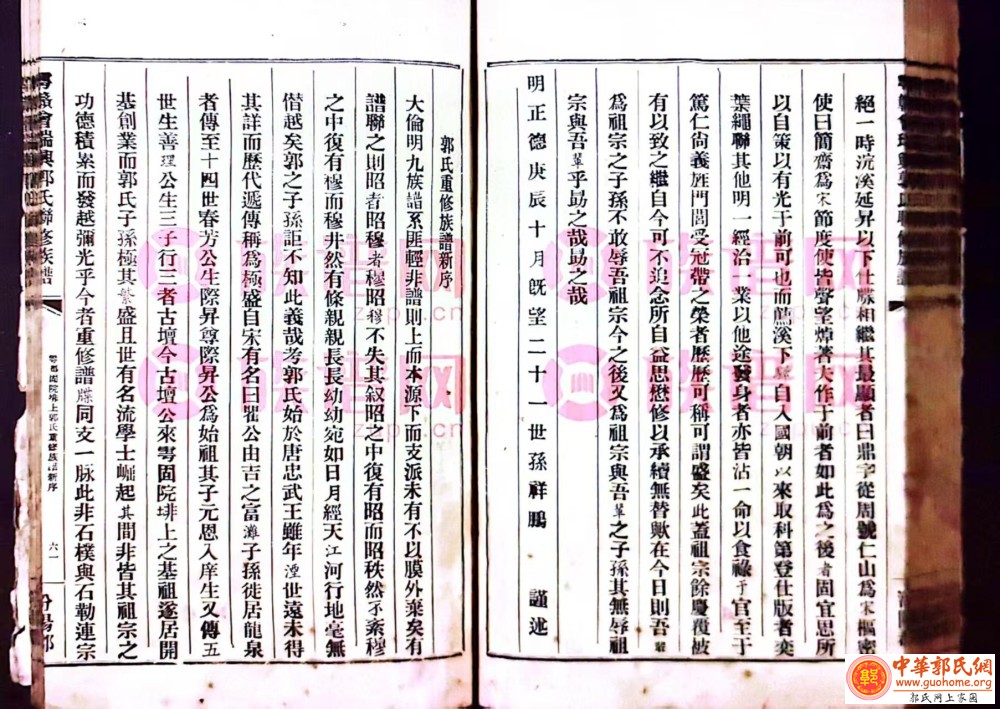 絕一時浣溪延昇以下仕牒相繼其最顯者曰鼎字從周號仁山為宋樞密
使曰簡齋為宋節度使皆聲望焯著夫作于前者如此為之後者固宜思所
以自策以有光于前可也而溪下自入國朝以來取科第登仕版者奕
葉繩聯其他明一經治一業以他途發身者亦皆沾一命以食祿于官至于
篤仁尚義旌門閭受冠帶之榮者歷歷可稱可謂盛矣此蓋祖宗餘慶覆被
有以致之繼自今可不追念所自益思懋修以承續無替歟在今日則吾輩
為祖宗之子孫不敢辱吾祖宗今之後又為祖宗與吾輩之子孫其無辱祖
宗與吾輩乎勗之哉勗之哉
明正德庚辰十月既望二十一世孫祥鵬 謹述
郭氏重修族譜新序
大倫明九族譜系匪輕非譜則上而本源下而支派未有不以膜外棄矣有
譜聯之則昭者昭穆者穆昭穆不失其叙昭之中復有昭而昭秩然不紊穆
之中復有穆而穆井然有條親親長長幼幼宛如日月經天江河行地毫無
僭越矣郭之子孫詎不知此義哉考郭氏始於唐忠武王雖年湮世遠未得
其詳而歷代遞傳稱為極盛自宋有名曰瞿公由吉之富灘子孫徙居龍泉
者傳至十四世春芳公生際昇尊際昇公為始祖其子元恩入庠生又傳五
世生善理公生三子行三者古壇今古壇公來雩固院埠上之基祖遂居開
基創業而郭氏子孫極其繁盛且世有名流學士崛起其間非皆其祖宗之
功德積累而發越彌光乎今者重修譜牒同支一脉此非石樸與石勒連宗
雩贛會瑞興郭氏聯修族譜
雩都固院埠上郭氏重修族譜新序
六一
汾陽郡
族谱网
zupu.cn
族谱网
zupu.cn
族谱网
zupu.cn
族谱网
zupu.cn
中華郭氏網
www.guohome.org
郭氏网上家园